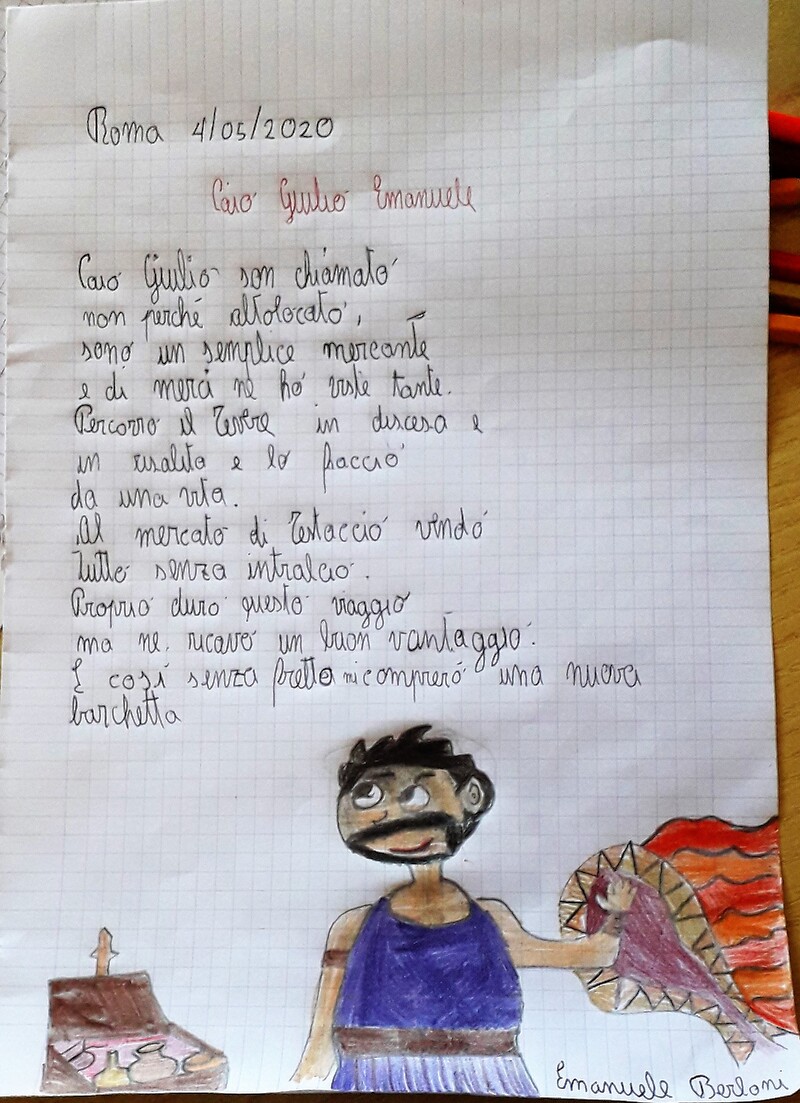 Roma 4/05/2020
Caio Giulio Emanuele
Caio Giulio son chiamato
non perché altolocato,
sono un semplice mercante
e di merci ne ho viste tante.
Percorro il Tevere in discesa e
in risalita e lo faccio
da una vita.
Al mercato di Testaccio vendo
tutto senza intralcio.
Proprio duro questo viaggio
ma ne ricavo un buon vantaggio.
E così senza fretta mi comprerò una nuova
barchetta
Emanuele Berloni